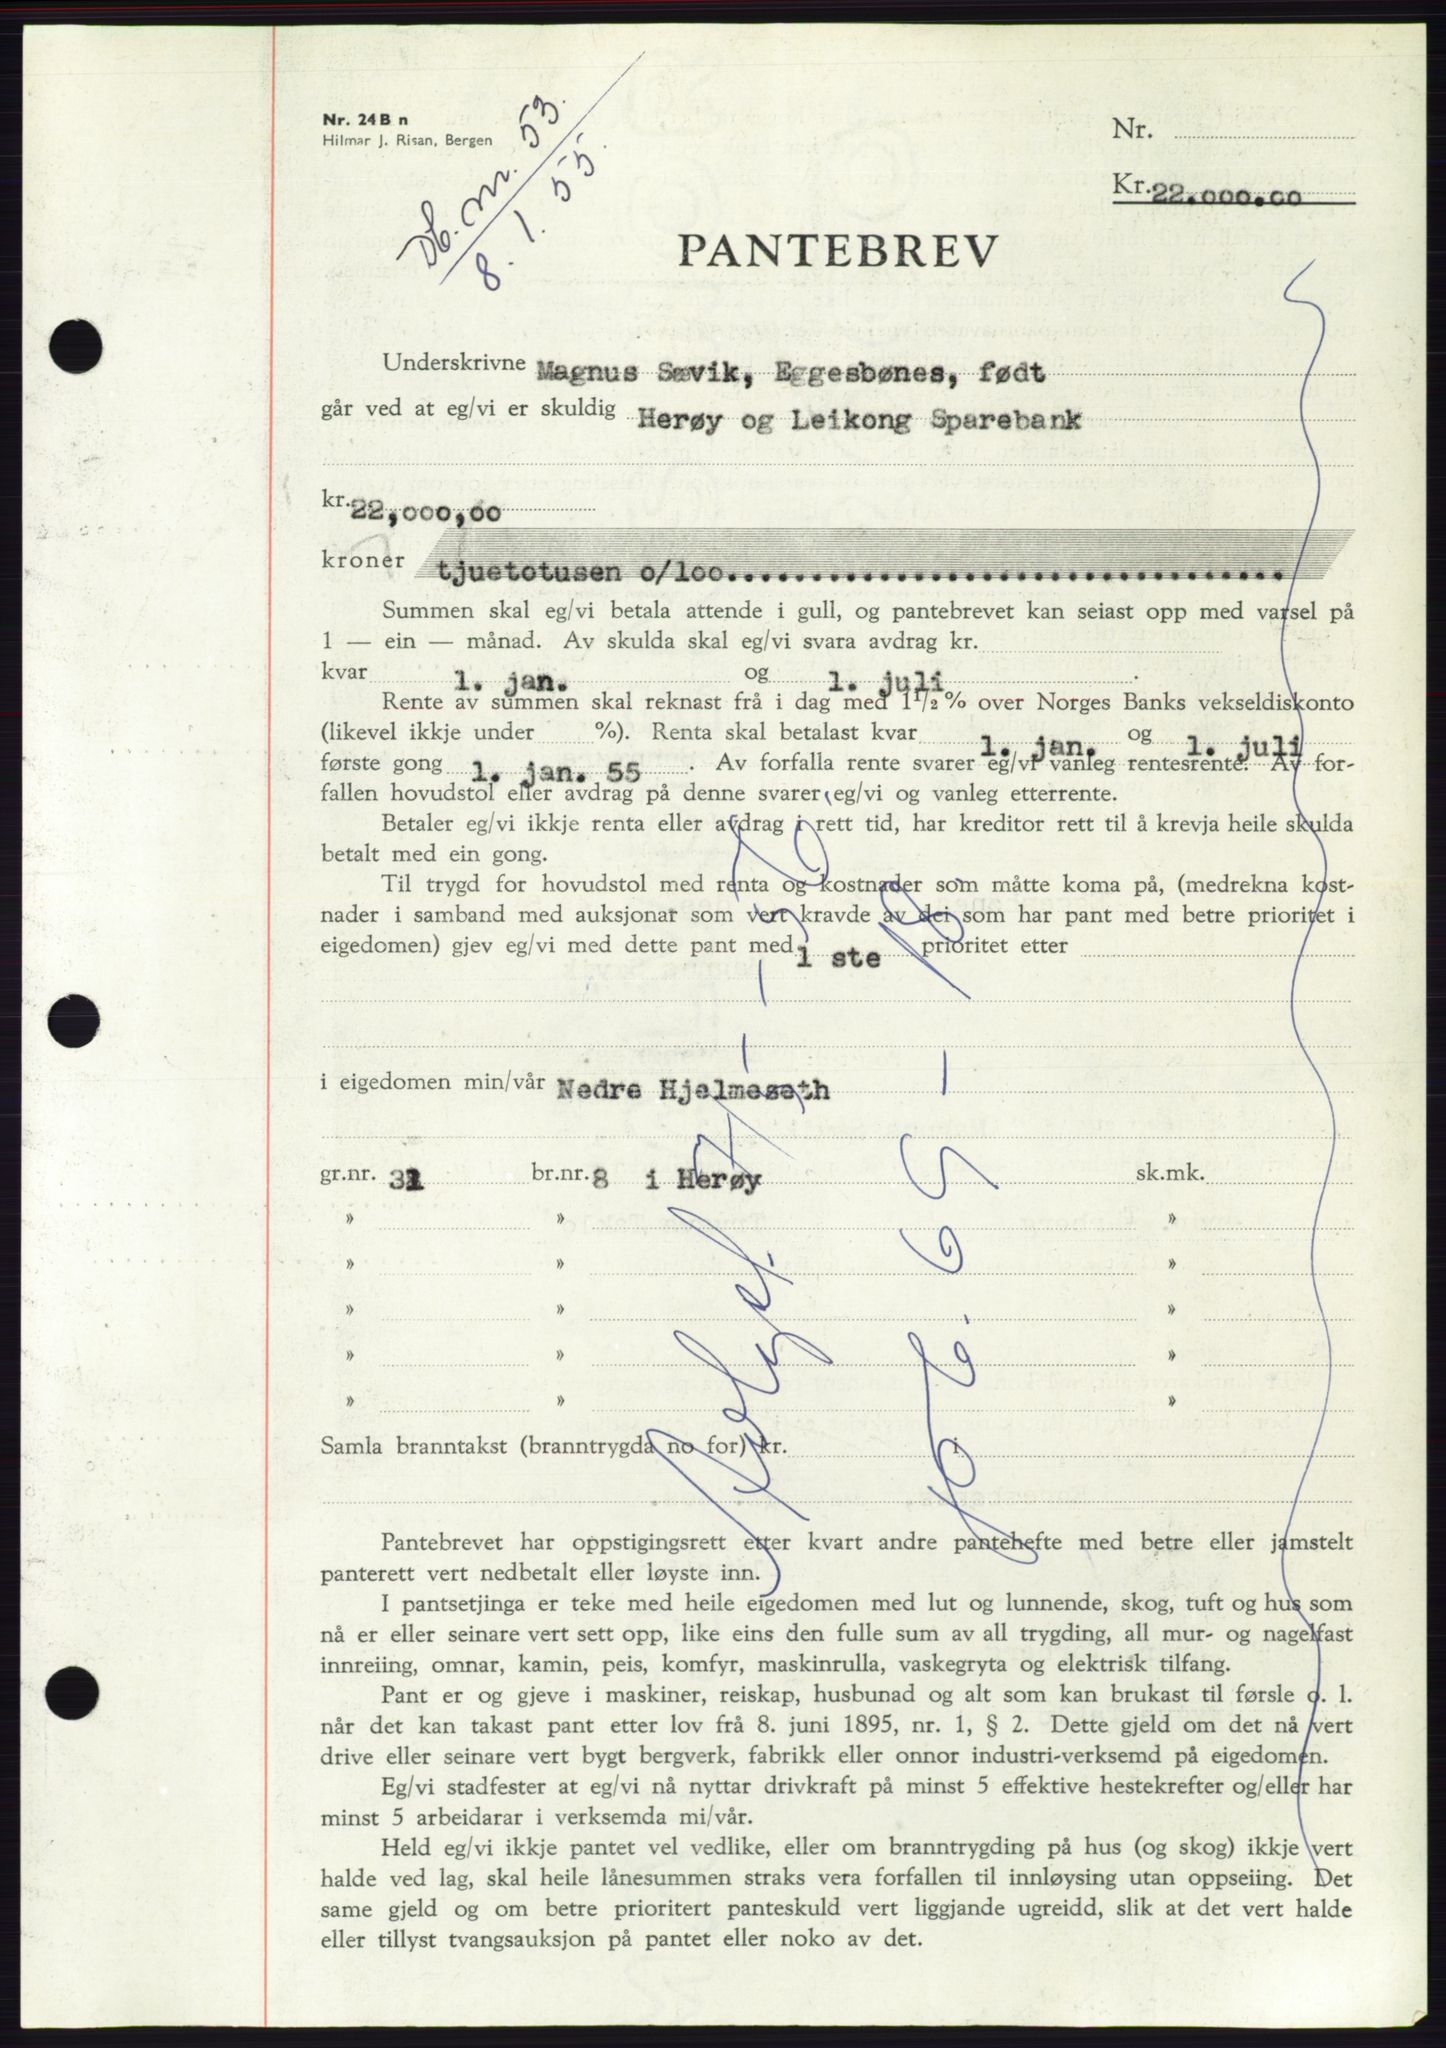 Nr. 24 B n
Hilmar J. Risan, Bergen
53.
8. 1. 55.
Nr.
Kr. 22.000.00
PANTEBREV
Underskrivne Magnus Sævik, Eggesbønes, født
går ved at eg/vi er skuldig Herøy og Leikong Sparebank
kr. 22,000,00
kroner tjuetotusen o/loo........................................
Summen skal eg/vi betala attende i gull, og pantebrevet kan seiast opp med varsel på
1 — ein — månad. Av skulda skal eg/vi svara avdrag kr.
kvar 1. jan. og 1. juli .
Rente av summen skal reknast frå i dag med 1 1/2 % over Norges Banks vekseldiskonto
(likevel ikkje under %). Renta skal betalast kvar 1. jan. og 1. juli
første gong 1. jan. 55 . Av forfalla rente svarer eg/vi vanleg rentesrente. Av for-
fallen hovudstol eller avdrag på denne svarer eg/vi og vanleg etterrente.
Betaler eg/vi ikkje renta eller avdrag i rett tid, har kreditor rett til å krevja heile skulda
betalt med ein gong.
Til trygd for hovudstol med renta og kostnader som måtte koma på, (medrekna kost-
nader i samband med auksjonar som vert kravde av dei som har pant med betre prioritet i
eigedomen) gjev eg/vi med dette pant med 1 ste prioritet etter
i eigedomen min/vår Nedre Hjelmeseth
gr.nr. 31 br.nr. 8 i Herøy sk.mk.
» » »
» » »
» » »
» » »
» » »
Samla branntakst (branntrygda no for) kr. i
Pantebrevet har oppstigingsrett etter kvart andre pantehefte med betre eller jamstelt
panterett vert nedbetalt eller løyste inn.
I pantsetjinga er teke med heile eigedomen med lut og lunnende, skog, tuft og hus som
nå er eller seinare vert sett opp, like eins den fulle sum av all trygding, all mur- og nagelfast
innreiing, omnar, kamin, peis, komfyr, maskinrulla, vaskegryta og elektrisk tilfang.
Pant er og gjeve i maskiner, reiskap, husbunad og alt som kan brukast til førsle o. l.
når det kan takast pant etter lov frå 8. juni 1895, nr. 1, § 2. Dette gjeld om det nå vert
drive eller seinare vert bygt bergverk, fabrikk eller onnor industri-verksemd på eigedomen.
Eg/vi stadfester at eg/vi nå nyttar drivkraft på minst 5 effektive hestekrefter og/eller har
minst 5 arbeidarar i verksemda mi/vår.
Held eg/vi ikkje pantet vel vedlike, eller om branntrygding på hus (og skog) ikkje vert
halde ved lag, skal heile lånesummen straks vera forfallen til innløysing utan oppseiing. Det
same gjeld og om betre prioritert panteskuld vert liggjande ugreidd, slik at det vert halde
eller tillyst tvangsauksjon på pantet eller noko av det.